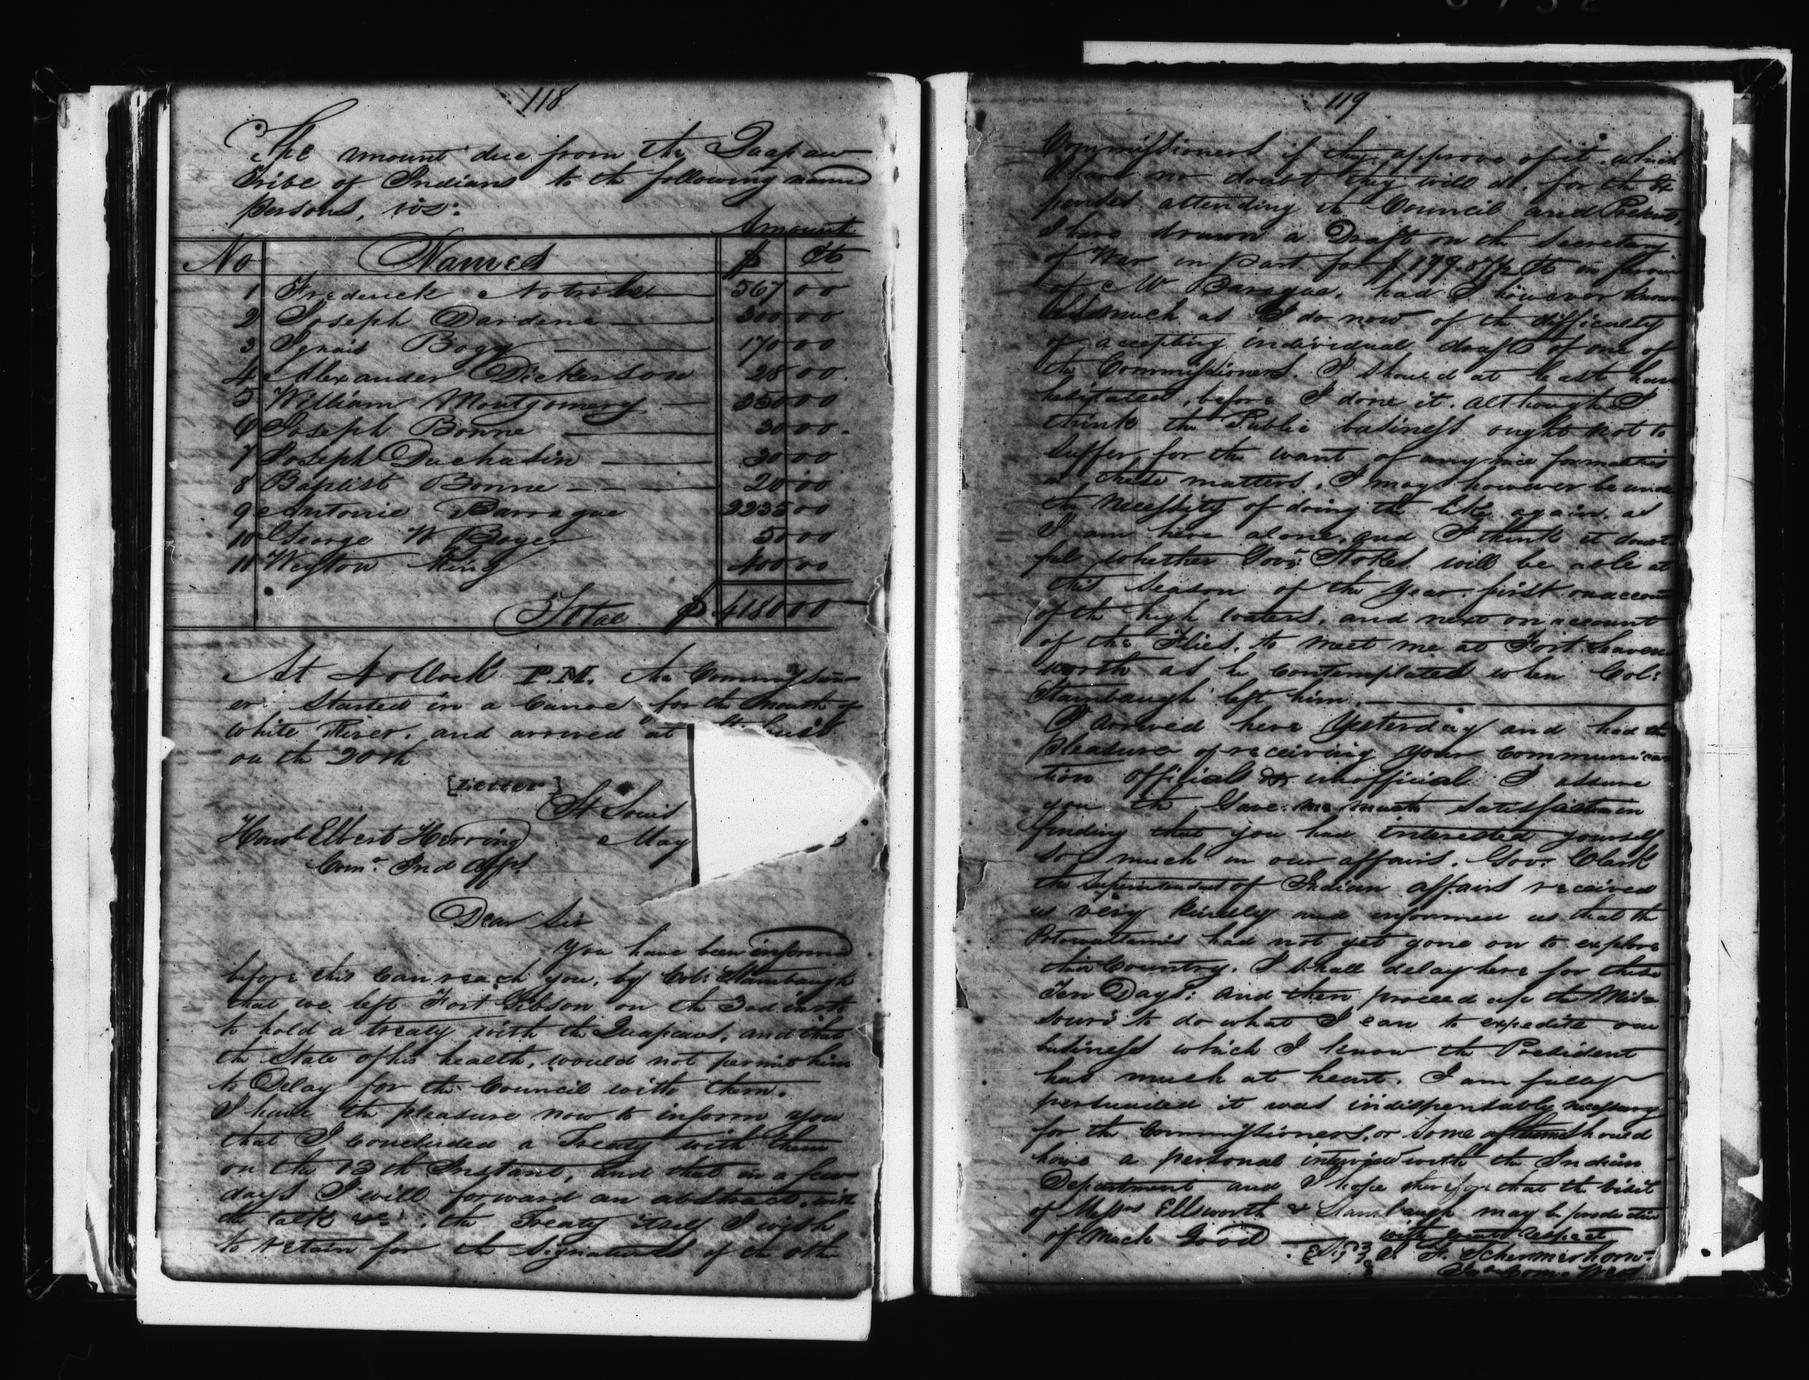 118
The amount due from the Quapaw
Tribe of Indians to the following named
persons, viz:
Amount
No Names $ Cts
1 Frederick Notribe 567 00
2 Joseph Dardene 300 00
3 Ignais Bogy 170 00
4 Alexander Dickerson 28 00
5 William Montgomery 350 00
6 Joseph Bonne 30 00
7 Joseph Duchasin 30 00
8 Baptist Bonne 20 00
9 Antonie Barraque 2235 00
10 George W Boyer 50 00
11 Weyton King 400 00
Total $ 4180 00
At 4 oClock P.M. the Commission-
er started in a Canoe for the Mouth of
White River, and arrived at
on the 20th
[Letter]
St Louis
Honbl Elbert Herring May 3
Comr Ind Affs
Dear Sir
You have been informed
before this can reach you, by Col: Stambaugh
that we left Fort Gibson on the 3rd inst,
to hold a treaty with the Quapaws, and that
the State of his health, would not permit him
to Delay for the Council with them.
I have the pleasure now to inform you
that I concluded a Treaty with them
on the 13th Instant, and that in a few
days I will forward an abstract, with
the talk &c: the Treaty itself I wish
to retain for the signatures of the other
119
Commissioners if they approve of it, which
I have no doubt they will do, for the Ex
penses attending the Council and Presents,
I have drawn a Draft on the Secretary
of War in part for $ in favor
of Mr Baraque. had I however known
as much as I do now of the difficulty
of accepting individual drafts of one of
the Commissioners. I should at least have
hesitated, before I done it. although I
think the Public business ought not to
Suffer for the want of any nice formalities
in these matters, I may however be under
the necessity of doing the like again, as
I am here alone, and I think it doubt
ful whether Govr: Stokes will be able at
this season of the year. first on account
of the high waters, and next on account
of the Flies, to meet me at Fort Leaven
worth as he contemplated when Col:
Stambaugh left him.
I arrived here yesterday and had the
pleasure of receiving your Communica
tion official & unofficial. I assure
you the Gave me much satisfaction in
finding that you had interested yourself
so much in our affairs. Govr Clark
the Superintendent of Indian affairs received
us very kindly and informed us that the
Potowattamis had not yet gone on to explore
their Country. I shall delay here for these
Ten Days: and then proceed up the Mis-
souri to do what I can to expedite our
business which I know the President
has much at heart. I am fully
persuaded it was indispensably necessary
for the Commissioners, or some of them should
have a personal interview with the Indian
Department and I hope therefore that the visit
of Messrs Ellsworth & Stambaugh may be productive
of much Good with great respect
J. F. Schermerhorn
Ind Com. West